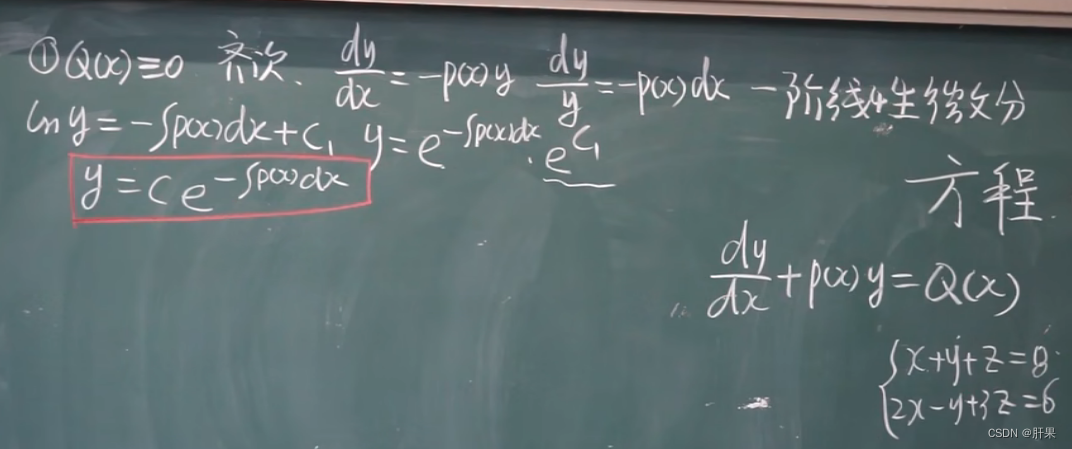 ①Q(x)≡0 齐次. dy/dx=-p(x)y dy/y=-p(x)dx 一阶线性微分
ln y=-∫p(x)dx+C₁ y=e^{-∫p(x)dx}·e^{C₁}
y=Ce^{-∫p(x)dx}
方程.
dy/dx+p(x)y=Q(x)
{x+y+z=8
2x-y+3z=6
CSDN @肝果